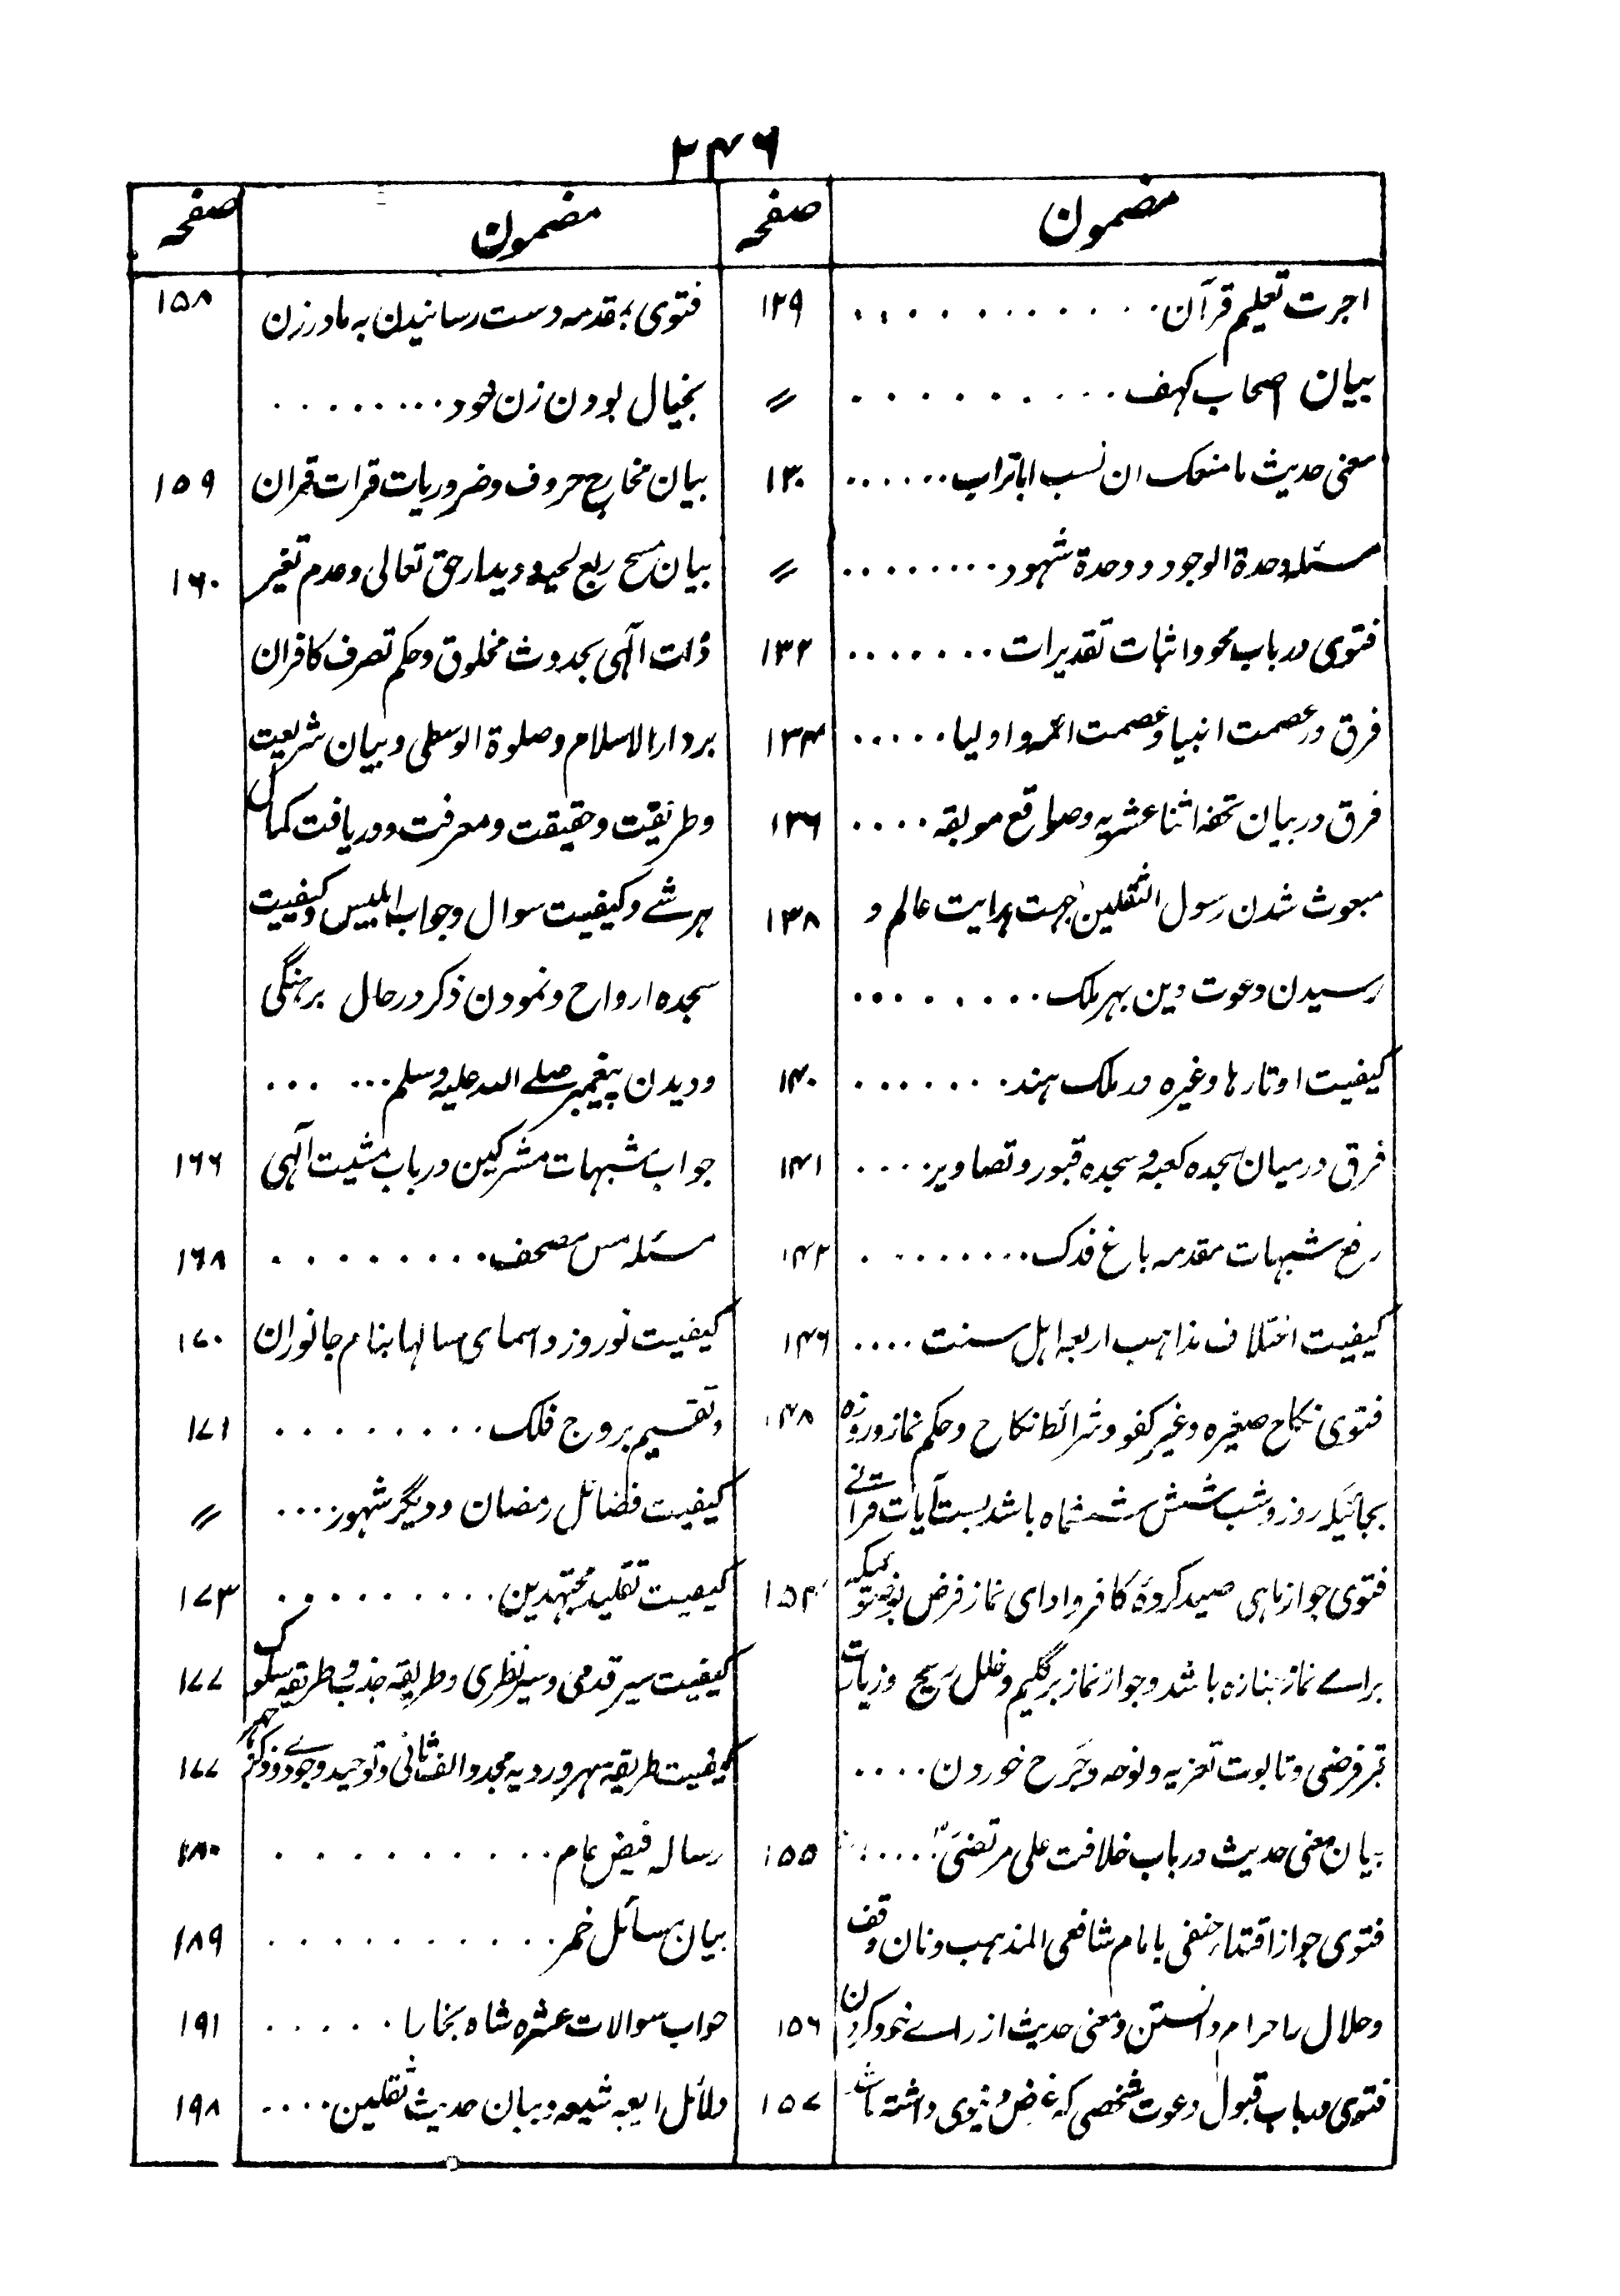 ۲۴۶
مضمون صفحہ
اجرت تعلیم قرآن ........... ۱۲۹
بیان اصحاب کہف .......... 〃
معنی حدیث ما منعک ان تسب اباتراب ...... ۱۳۰
مسئلہ وحدۃ الوجود و وحدۃ شہود ......... 〃
فتوی در باب محو و اثبات تقدیرات ....... ۱۳۲
فرق در عصمت انبیا و عصمت ائمہ و اولیا ..... ۱۳۴
فرق در بیان تحفہ اثنا عشریہ و صواقع موبقہ .... ۱۳۶
مبعوث شدن رسول الثقلین جہت ہدایت عالم و ۱۳۸
رسیدن دعوت دین بہر ملک .........
کیفیت اوتارہا وغیرہ در ملک ہند ....... ۱۴۰
فرق درمیان سجدہ کعبہ و سجدہ قبور و تصاویر .... ۱۴۱
رفع شبہات مقدمہ باغ فدک ......... ۱۴۲
کیفیت اختلاف مذاہب اربعہ اہل سنت .... ۱۴۶
فتوی نکاح صغیرہ و غیر کفو و شرائط نکاح و حکم نماز و روزہ ۱۴۸
بجائیکہ روز و شب شش شش ماہ باشد بست آیات قرآنے
فتوی جواز ماہی صید کردۂ کافر و ادای نماز فرض بوضوئیکہ ۱۵۴
براے نماز جنازہ باشد و جواز نماز بر گلیم و خلل ریح و زیارت
قبر فرضی و تابوت تعزیہ و نوحہ و جرح خوردن ....
بیان معنی حدیث در باب خلافت علی مرتضیٰ ..... ۱۵۵
فتوی جواز اقتداء حنفی بامام شافعی المذہب و نان وقف
و حلال را حرام دانستن و معنی حدیث از راے خود کردن ۱۵۶
فتوی در باب قبول دعوت شخصی کہ غرض دنیوی داشتہ باشد ۱۵۷
مضمون صفحہ
فتوی بمقدمہ دست رسانیدن بہ مادر زن ۱۵۸
بخیال بودن زن خود .........
بیان مخارج حروف و ضروریات قرات قران ۱۵۹
بیان مسح ربع لحیہ و دیدار حق تعالی و عدم تغیر ۱۶۰
ذات آلہی بحدوث مخلوق و حکم تصرف کافران
بر دارالاسلام و صلوۃ الوسطی و بیان شریعت
و طریقت و حقیقت و معرفت و دریافت کمال
ہر شے و کیفیت سوال و جواب ابلیس و کیفیت
سجدہ ارواح و نمودن ذکر در حال برہنگی
و دیدن پیغمبر صلے اللہ علیہ وسلم ......
جواب شبہات مشرکین در باب مشیت آلہی ۱۶۶
مسئلہ مس مصحف ......... ۱۶۸
کیفیت نوروز و اسمای سالہا بنام جانوران ۱۷۰
و تقسیم بروج فلک ......... ۱۷۱
کیفیت فضائل رمضان و دیگر شہور .... 〃
کیفیت تقلید مجتہدین .......... ۱۷۳
کیفیت سیر قدمی و سیر نظری و طریقہ جذب و طریقہ سلوک ۱۷۷
کیفیت طریقہ سہروردیہ مجدد الف ثانی و توحید وجودے و ذکر ۱۷۷
رسالہ فیض عام .......... ۱۸۰
بیان مسائل خمر .......... ۱۸۹
جواب سوالات عشرہ شاہ بخارا ...... ۱۹۱
دلائل اربعہ شیعہ و بیان حدیث ثقلین .... ۱۹۸